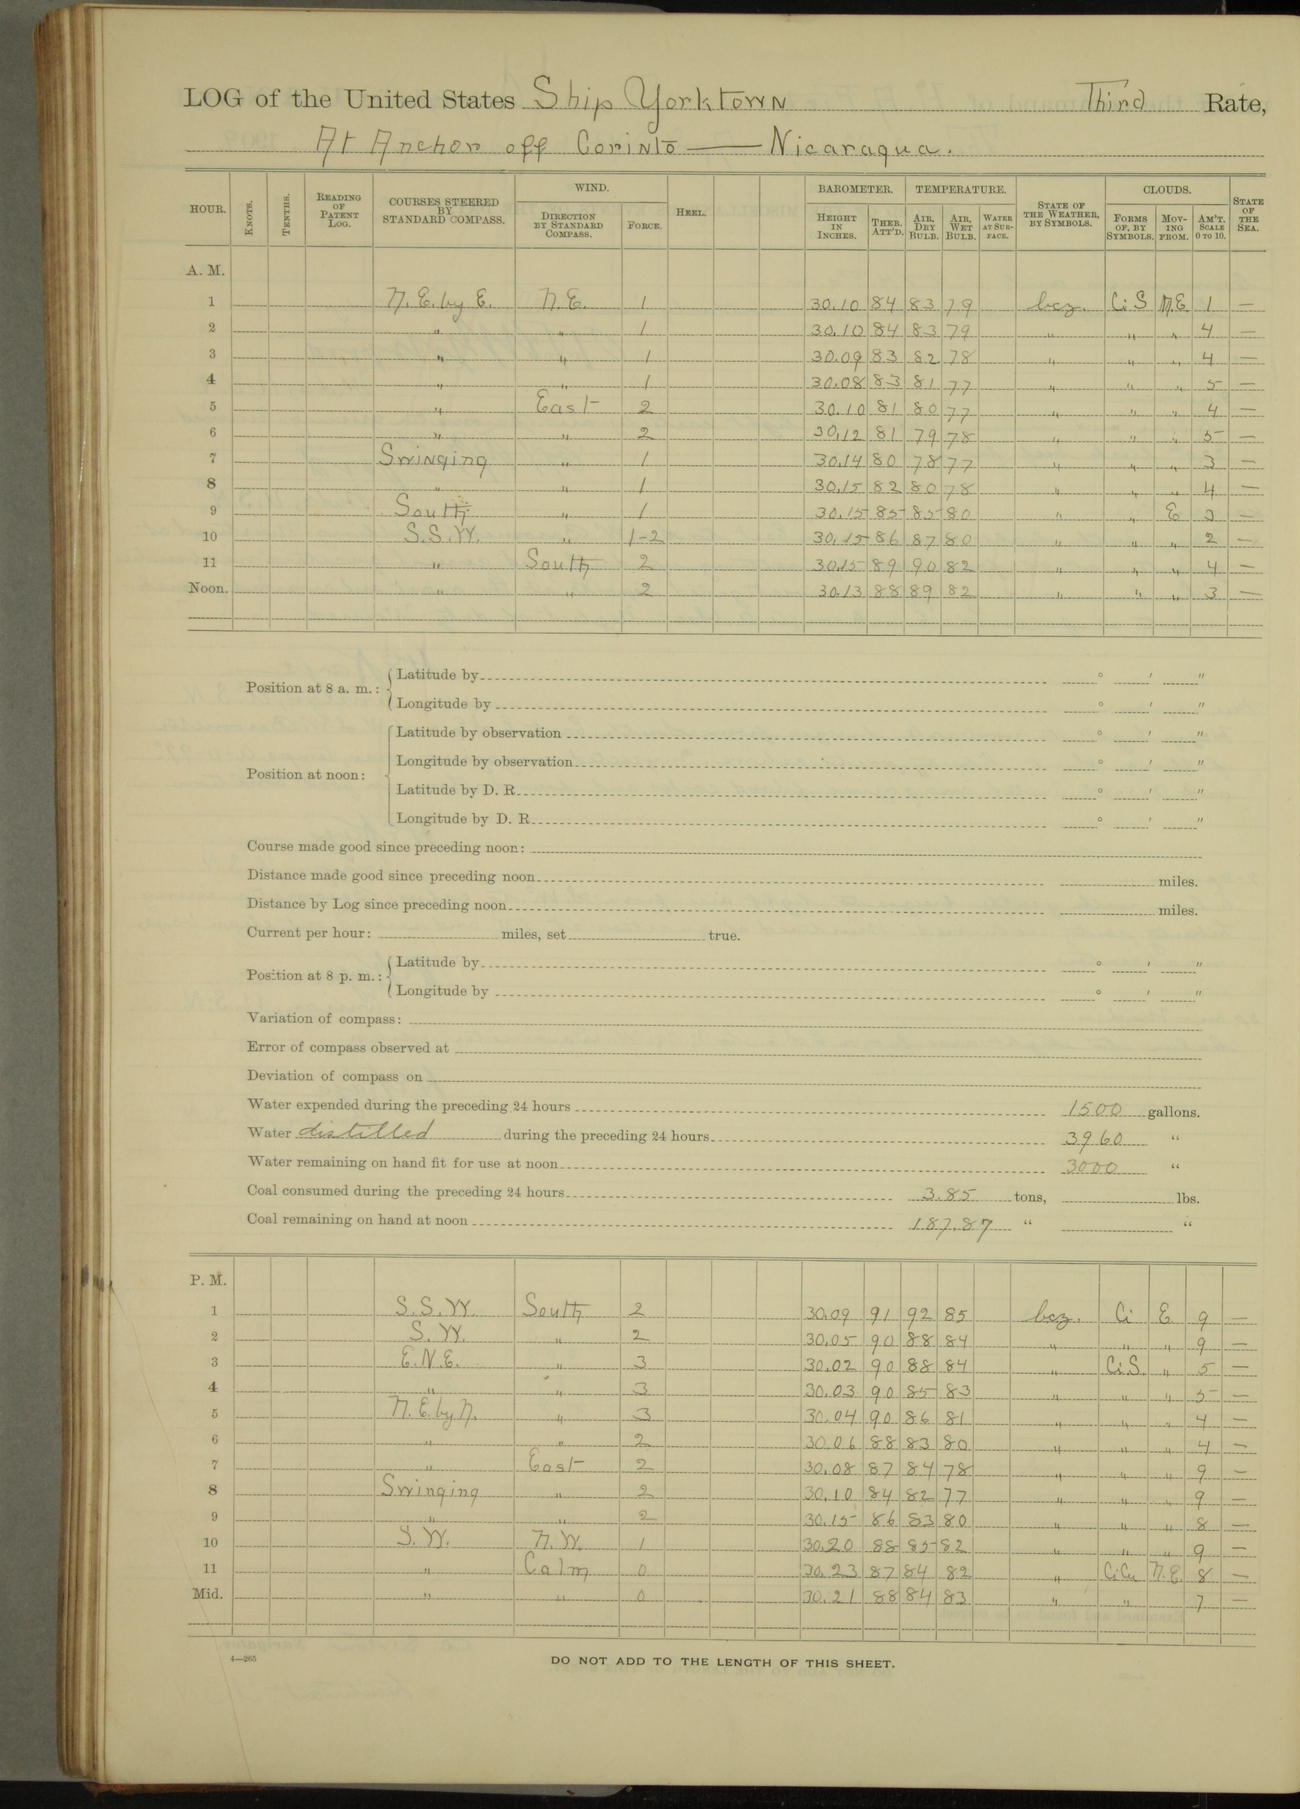 LOG of the United States Ship Yorktown Third Rate,
At Anchor off Corinto — Nicaragua.
HOUR. KNOTS. TENTHS. READING OF PATENT LOG. COURSES STEERED BY STANDARD COMPASS. WIND. DIRECTION BY STANDARD COMPASS. FORCE. HEEL. BAROMETER. HEIGHT IN INCHES. THER. ATT'D. TEMPERATURE. AIR, DRY BULB. AIR, WET BULB. WATER AT SURFACE. STATE OF THE WEATHER, BY SYMBOLS. CLOUDS. FORMS OF, BY SYMBOLS. MOVING FROM. AM'T. SCALE 0 TO 10. STATE OF THE SEA.
A. M.
1 N. E. by E. N. E. 1 30.10 84 83 79 bcz. Ci S N.E 1 —
2 " " 1 30.10 84 83 79 " " " 4 —
3 " " 1 30.09 83 82 78 " " " 4 —
4 " " 1 30.08 83 81 77 " " " 5 —
5 " East 2 30.10 81 80 77 " " " 4 —
6 " " 2 30.12 81 79 78 " " " 5 —
7 Swinging " 1 30.14 80 78 77 " " " 3 —
8 " " 1 30.15 82 80 78 " " " 4 —
9 South " 1 30.15 85 85 80 " " E —
10 S. S. W. " 1-2 30.15 86 87 80 " " " 2 —
11 " South 2 30.15 89 90 82 " " " 4 —
Noon. " " 2 30.13 88 89 82 " " 3 —
Position at 8 a. m.: Latitude by ° ′ ″
Longitude by ° ′ ″
Position at noon: Latitude by observation ° ′ ″
Longitude by observation ° ′ ″
Latitude by D. R. ° ′ ″
Longitude by D. R. ° ′ ″
Course made good since preceding noon:
Distance made good since preceding noon miles.
Distance by Log since preceding noon miles.
Current per hour: miles, set true.
Position at 8 p. m.: Latitude by ° ′ ″
Longitude by ° ′ ″
Variation of compass:
Error of compass observed at
Deviation of compass on
Water expended during the preceding 24 hours 1500 gallons.
Water distilled during the preceding 24 hours 3960 "
Water remaining on hand fit for use at noon 3000 "
Coal consumed during the preceding 24 hours 3.85 tons, lbs.
Coal remaining on hand at noon 187.87 " "
P. M.
1 S. S. W. South 2 30.09 91 92 85 bcz. Ci E 9 —
2 S. W. " 2 30.05 90 88 84 " " " 9 —
3 E. N. E. " 3 30.02 90 88 84 " Ci.S. " 5 —
4 " " 3 30.03 90 85 83 " " " 5 —
5 N. E. by N. " 3 30.04 90 86 81 " " " 4 —
6 " " 2 30.06 88 83 80 " " " 4 —
7 " East 2 30.08 87 84 78 " " " 9 —
8 Swinging " 2 30.10 84 82 77 " " " 9 —
9 " " 2 30.15 86 83 80 " " " 8 —
10 S. W. N. W. 1 30.20 88 85 82 " " " 9 —
11 " Calm 0 30.23 87 84 82 " Ci Cu N. E. 8 —
Mid. " " 0 30.21 88 84 83 " " 7 —
4—265
DO NOT ADD TO THE LENGTH OF THIS SHEET.